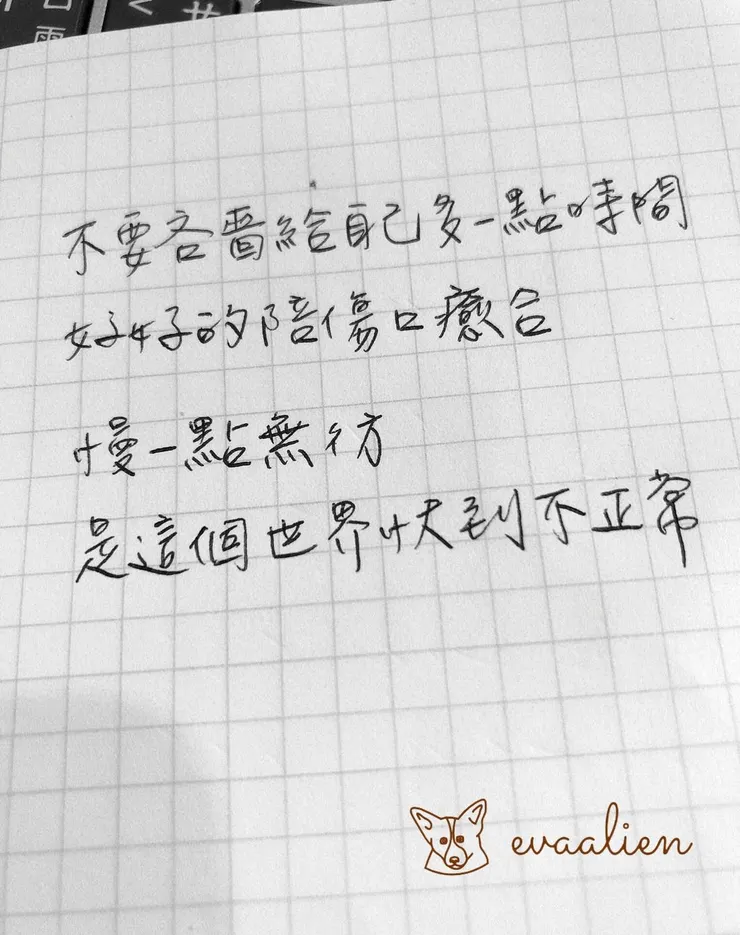 不要吝嗇給自己多一點時間
好好的陪傷口癒合
慢一點無彷
是這個世界快到不正常
evaalien